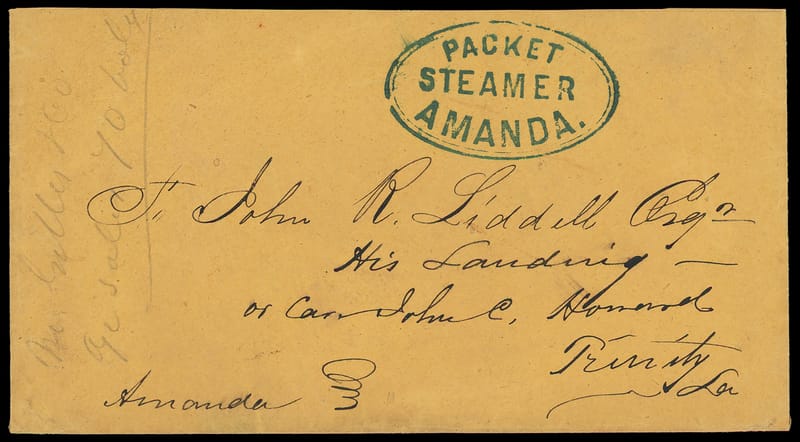 PACKET
STEAMER
AMANDA.
To John R. Liddell Esqr
His Landing
or Care John C. Howard
Trinity
La
Amanda
70 bals